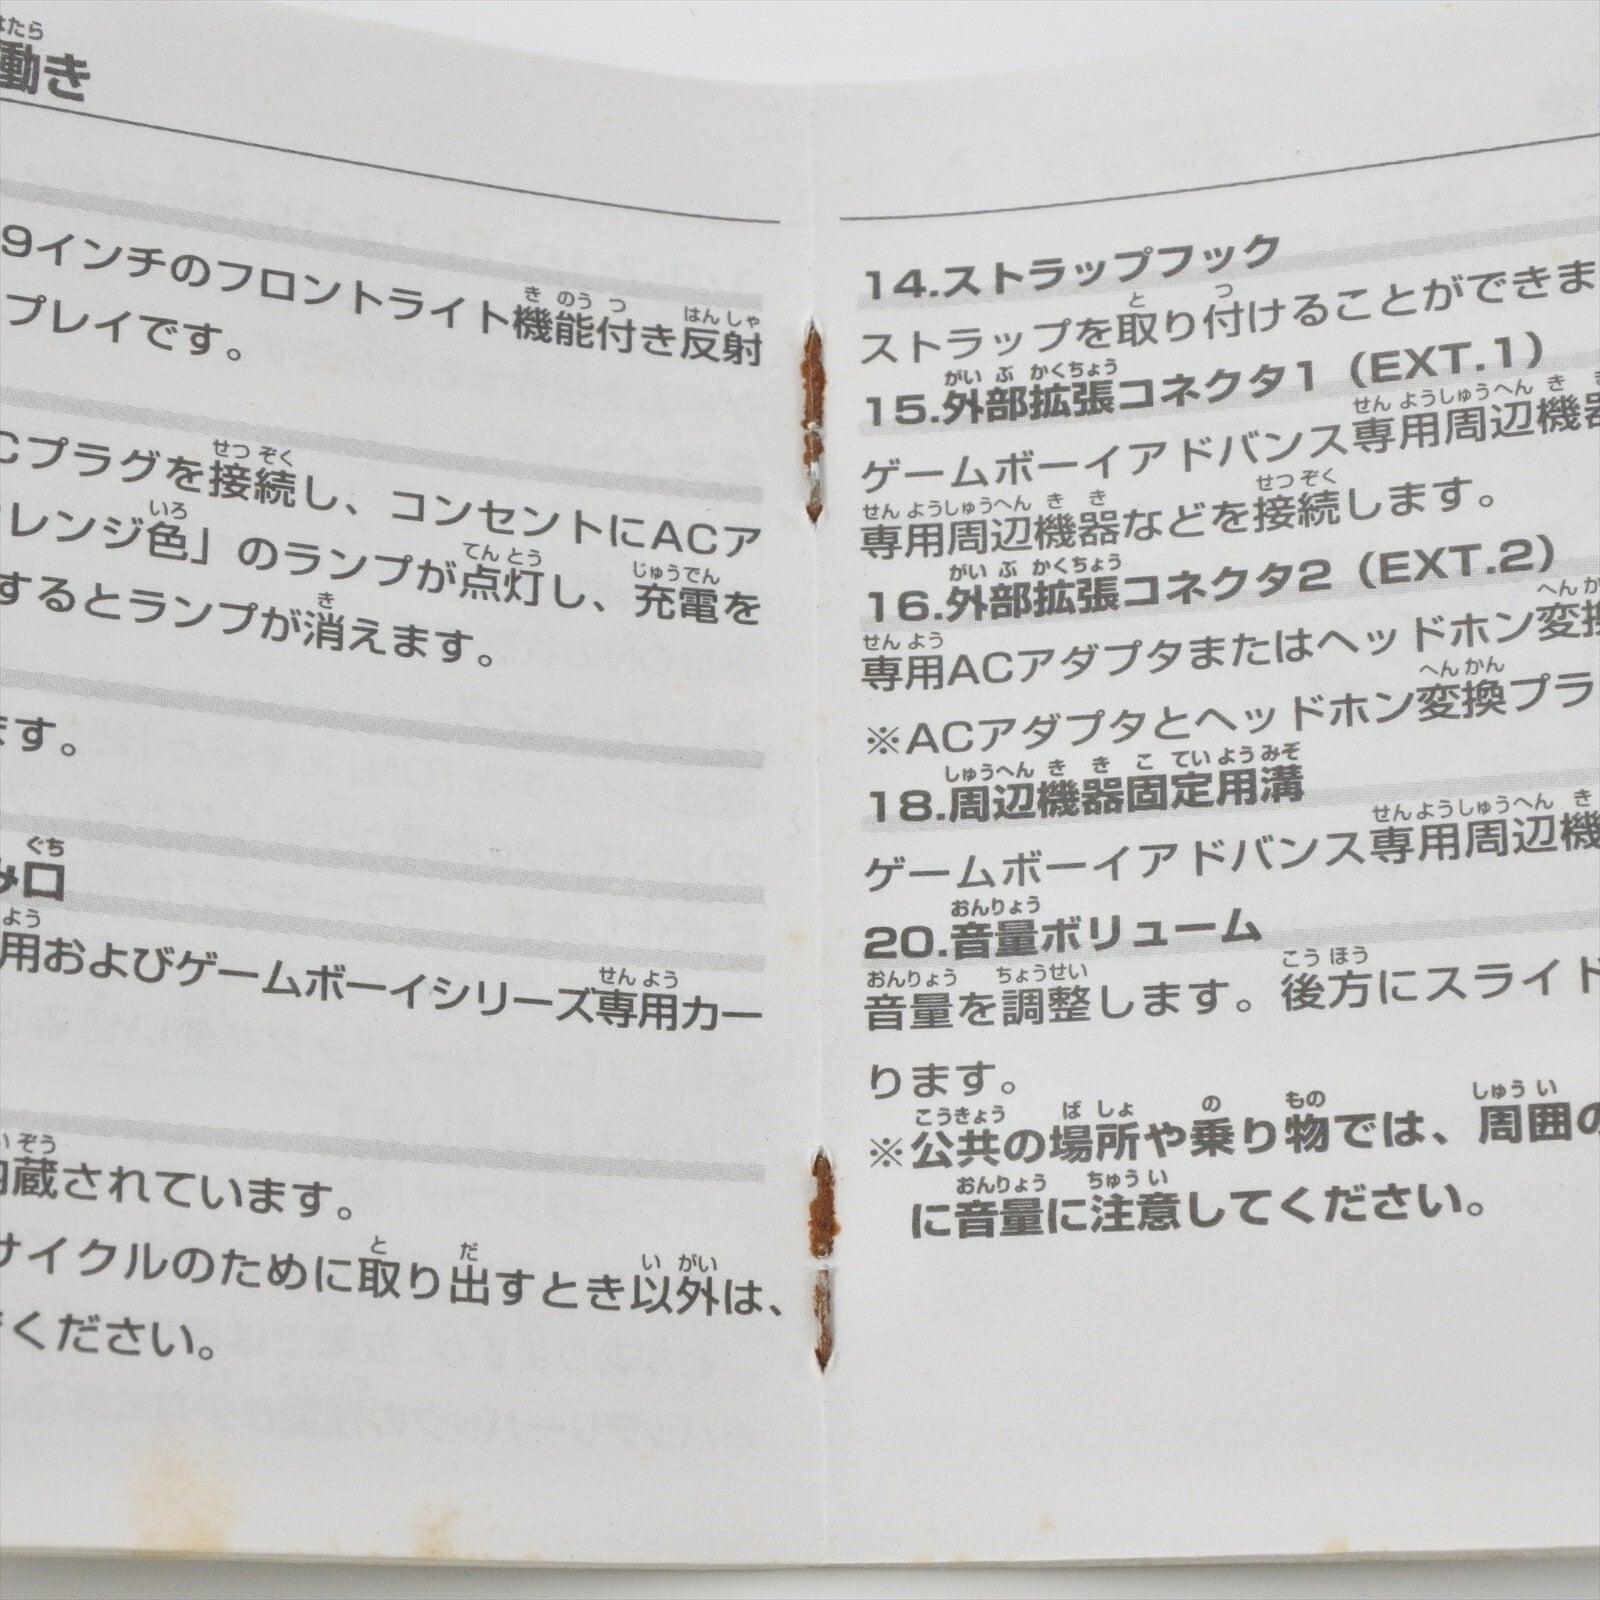 働き
9インチのフロントライト機能付き反射
プレイです。
Cプラグを接続し、コンセントにACア
レンジ色」のランプが点灯し、充電を
するとランプが消えます。
ます。
み口
用およびゲームボーイシリーズ専用カー
内蔵されています。
サイクルのために取り出すとき以外は、
でください。
14.ストラップフック
ストラップを取り付けることができま
15.外部拡張コネクタ1（EXT.1）
ゲームボーイアドバンス専用周辺機器
専用周辺機器などを接続します。
16.外部拡張コネクタ2（EXT.2）
専用ACアダプタまたはヘッドホン変換
※ACアダプタとヘッドホン変換プラ
18.周辺機器固定用溝
ゲームボーイアドバンス専用周辺機
20.音量ボリューム
音量を調整します。後方にスライド
ります。
※公共の場所や乗り物では、周囲の
に音量に注意してください。